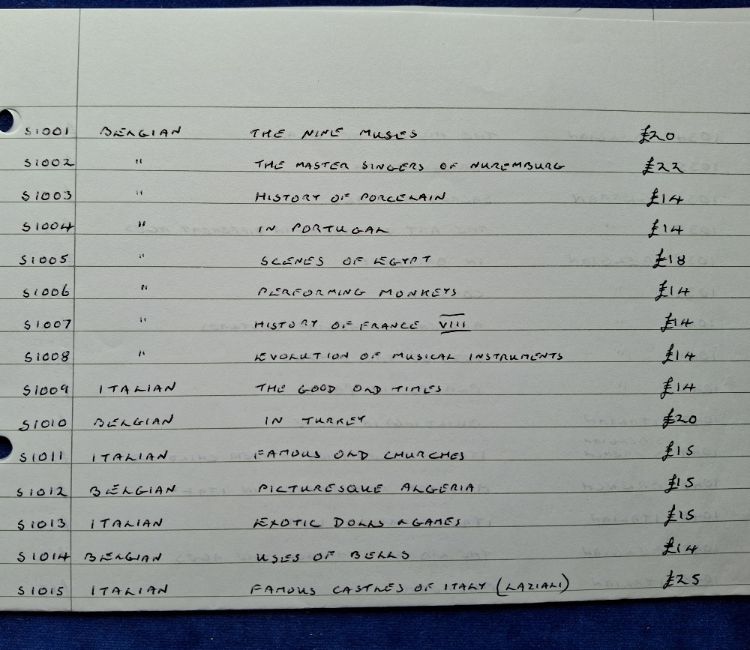 S1001 BELGIAN THE NINE MUSES £20
S1002 " THE MASTER SINGERS OF NUREMBURG £22
S1003 " HISTORY OF PORCELAIN £14
S1004 " IN PORTUGAL £14
S1005 " SCENES OF EGYPT £18
S1006 " PERFORMING MONKEYS £14
S1007 " HISTORY OF FRANCE VIII £14
S1008 " EVOLUTION OF MUSICAL INSTRUMENTS £14
S1009 ITALIAN THE GOOD OLD TIMES £14
S1010 BELGIAN IN TURKEY £20
S1011 ITALIAN FAMOUS OLD CHURCHES £15
S1012 BELGIAN PICTURESQUE ALGERIA £15
S1013 ITALIAN EXOTIC DOLLS & GAMES £15
S1014 BELGIAN USES OF BELLS £14
S1015 ITALIAN FAMOUS CASTLES OF ITALY (LAZIALI) £25